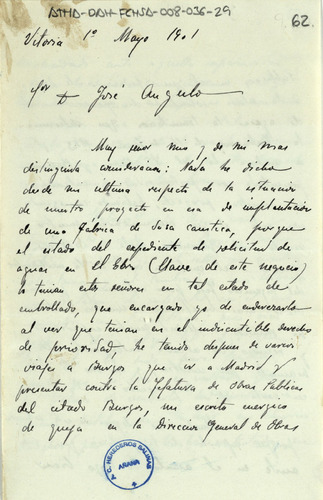 ATHA-DAH-FCHSA-008-036-29
62.
Vitoria 1º Mayo 1901
Sor D José Angulo
Muy señor mio y de mi mas
distinguida consideracion: Nada he dicho
desde mi ultima respecto de la situacion
de nuestro proyecto en esa de implantacion
de una fábrica de sosa caustica, porque
el estado del expediente de solicitud de
aguas en el Ebro (llave de este negocio)
lo tenian estos señores en tal estado de
embrollado, que encargado yo de enderezarlo
al ver que tenian en el indiscutible derecho
de prioridad, he tenido despues de varios
viajes a Burgos que ir a Madrid y
presentar contra la Jefatura de Obras Publicas
del citado Burgos, un escrito energico
de queja en la Direccion General de Obras
T. C. HEREDEROS SALINAS
ARANA